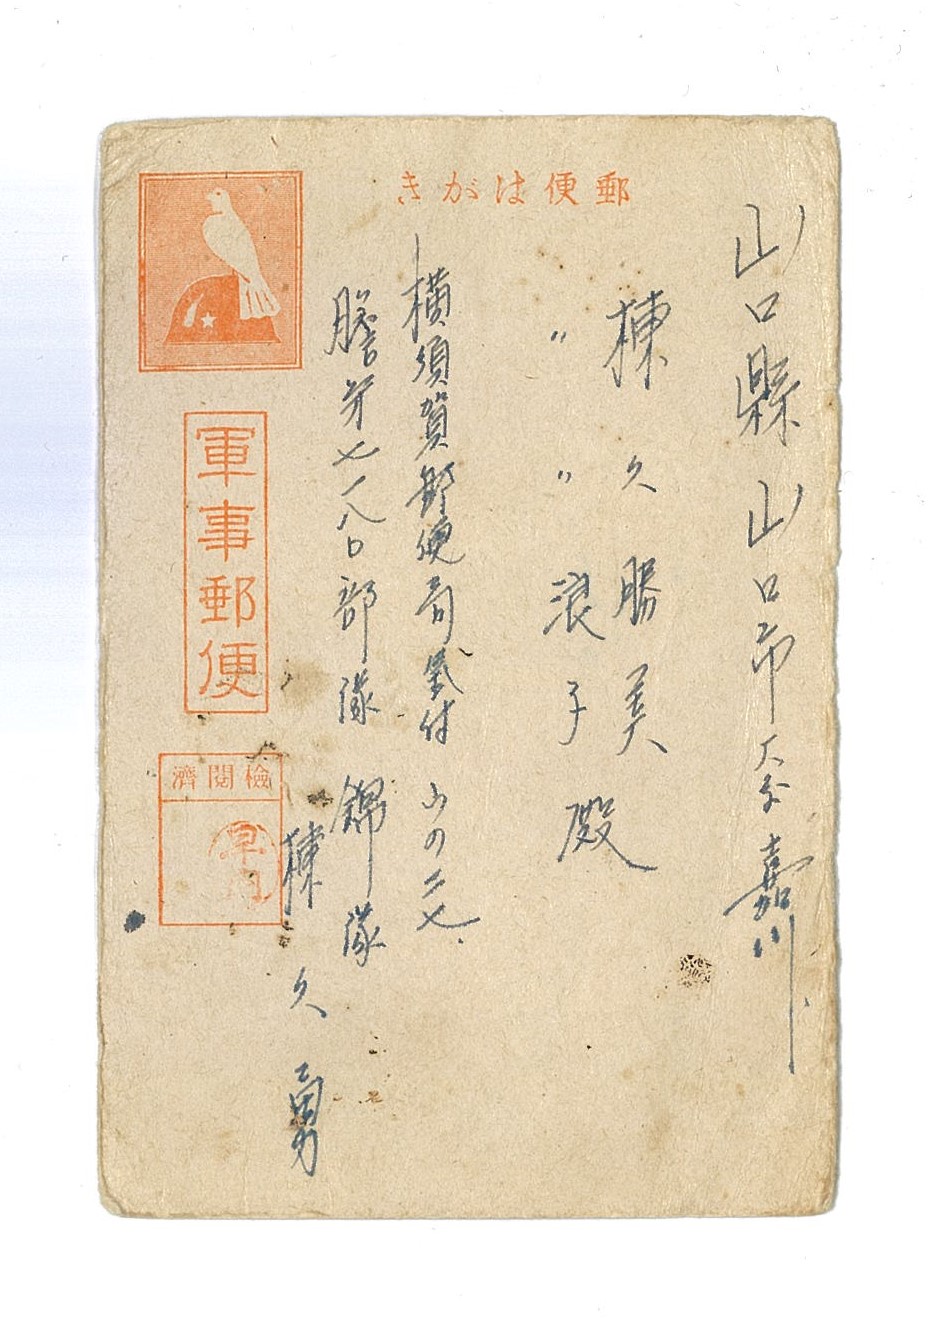 郵便はがき
山口縣山口市大字嘉川
棟久勝美
〃 〃 浪子殿
横須賀郵便局氣付 ウの二七
膽第七一八〇部隊 錦隊
棟久勇
軍事郵便
檢閲濟